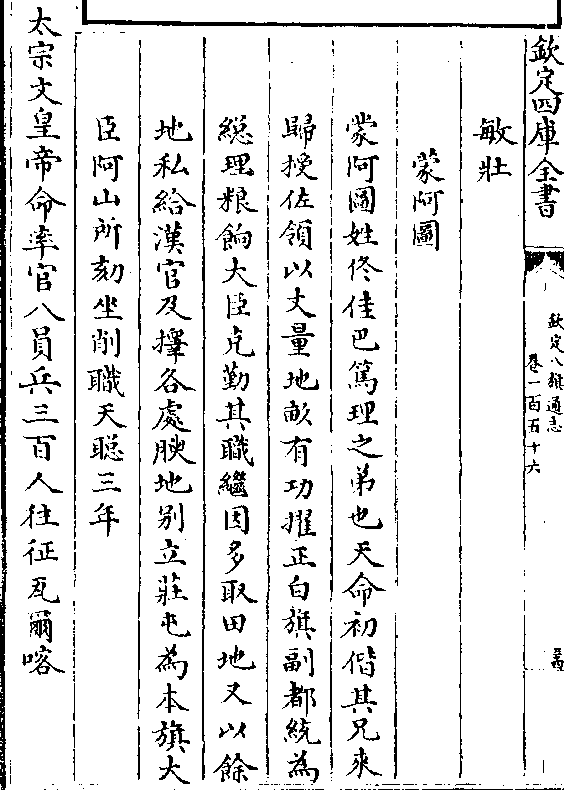 欽定四庫全書
欽定八旗通志
卷一百五十六
敏壯
蒙阿圖
蒙阿圖姓佟佳巴篤理之弟也天命初偕其兄來
歸授佐領以丈量地畝有功擢正白旗副都統為
總理糧餉大臣克勤其職繼因多取田地又以餘
地私給漢官及擇各處腴地别立莊屯為本旗大
臣阿山所劾坐削職天聰三年
太宗文皇帝命率官八員兵三百人往征瓦爾喀